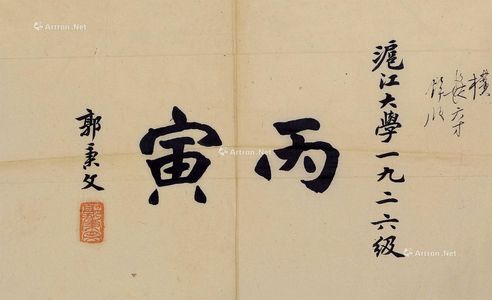 滬江大學一九二六級
丙寅
郭秉文
Artron.Net
Artron.Net
Artron.Net
Artron.Net